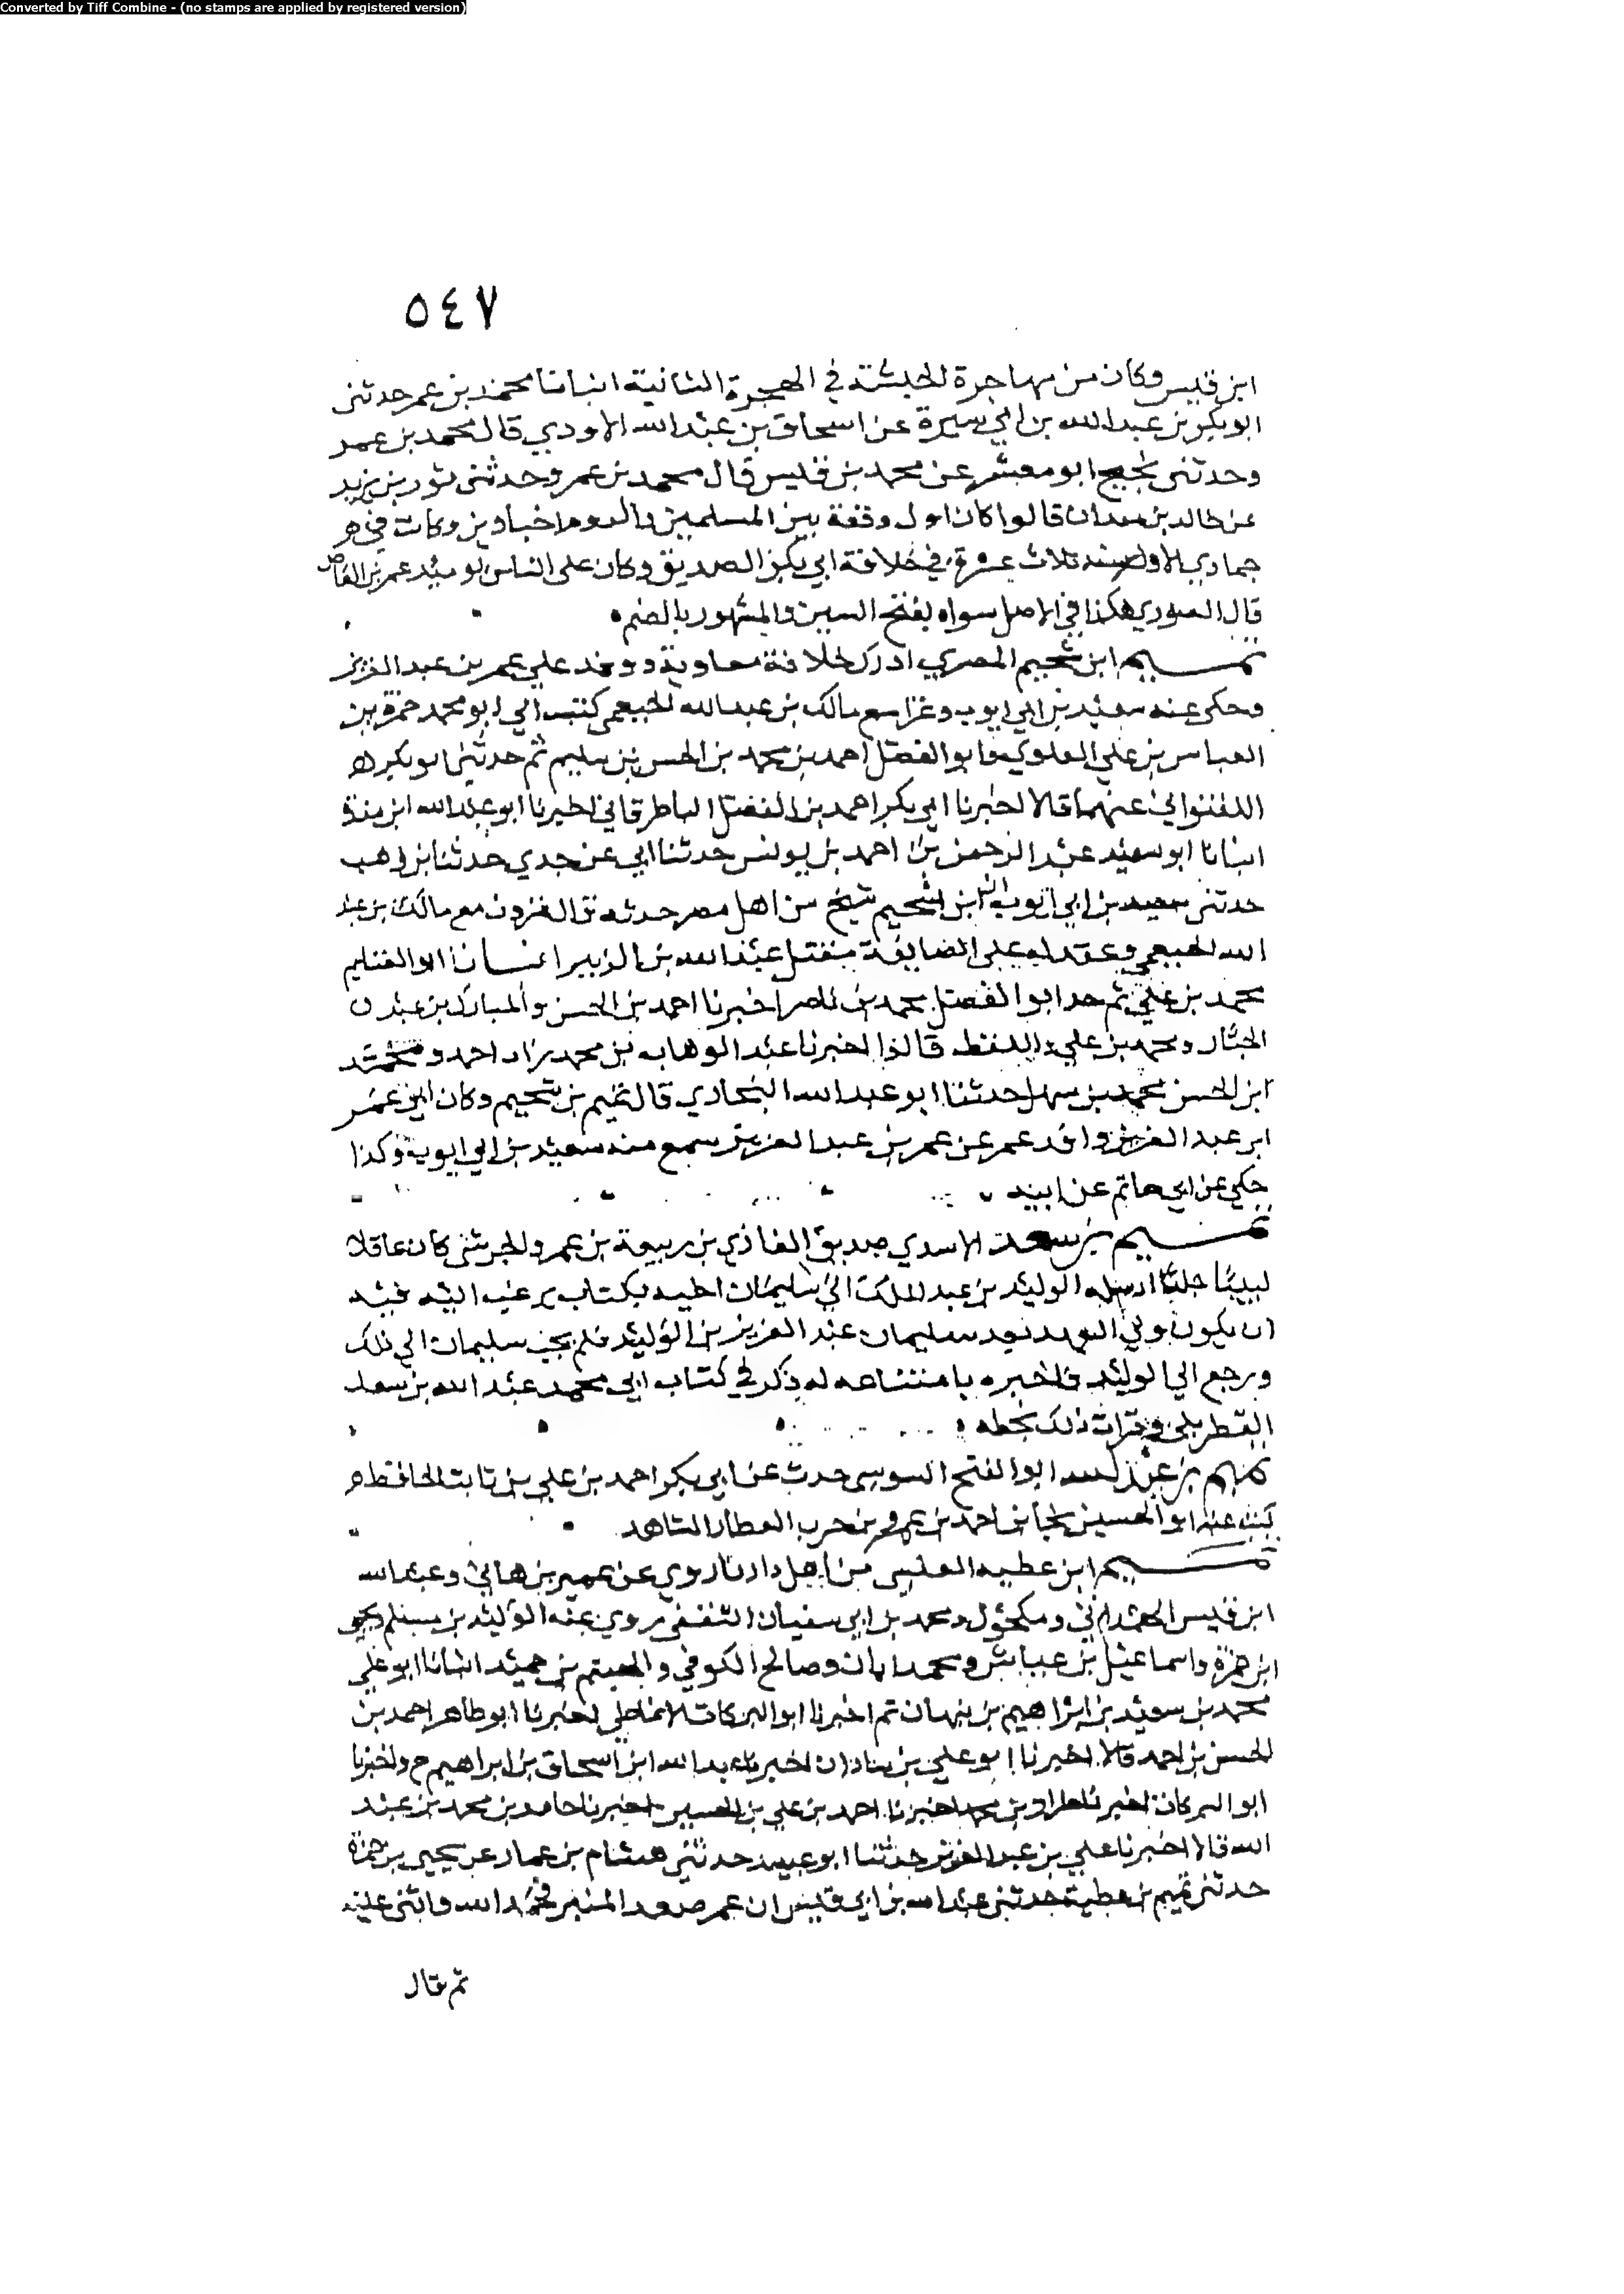 Converted by Tiff Combine - (no stamps are applied by registered version)
٥٤٧
ابن قيس وكان من مهاجرة الحبشة في الهجرة الثانية انبانا محمد بن عمر حدثني
ابو بكر بن عبد الله بن ابي سبرة عن اسحاق بن عبد الله الاودي قال محمد بن عمر
وحدثني نجيح ابو معشر عن محمد بن قيس قال محمد بن عمر وحدثني ثور بن يزيد
عن خالد بن معدان قالوا كان اول وقعة بين المسلمين والروم اجنادين وكانت في
جمادي الاولى سنة ثلاث عشرة في خلافة ابي بكر الصديق وكان على الناس يومئذ عمر بن العاص
قال الصوري هكذا في الاصل سواه بفتح السين والمشهور بالضم
تميم ابن شحيم المصري ادرك خلافة معاوية ووفد علي عمر بن عبد العزيز
وحكى عنه سعيد بن ابي ايوب وغزا مع مالك بن عبد الله الخثعمي كتب الي ابو محمد حمزة بن
العباس بن علي العلوي وابو الفضل احمد بن محمد بن الحسن بن سليم ثم حدثني ابو بكر
اللفتواني عنهما قالا اخبرنا ابي بكر احمد بن الفضل الباطرقاني اخبرنا ابو عبد الله ابن مندة
انبانا ابو سعيد عبد الرحمن بن احمد بن يونس حدثنا ابي عن جدي حدثنا بن وهب
حدثني سعيد بن ابي ايوب ابن شحيم شيخ من اهل مصر حدثه الغزو مع مالك بن عبد
الله الخثعمي وعقد له على الصايفة مقتل عبد الله بن الزبير انبانا ابو الغنايم
محمد بن علي ثم حد ابو الفضل محمد بن ناصر اخبرنا احمد بن الحسن والمبارك بن عبد
الجبار ومحمد بن علي واللفظ قالوا اخبرنا عبد الوهاب بن محمد زاد احمد ومحمد
ابن الحسن محمد بن سهل حدثنا ابو عبد الله البخاري قال تميم بن شحيم وكان ابن عمر
ابن عبد العزيز وافد عمر عن عمر بن عبد العزيز سمع منه سعيد بن ابي ايوب وكذا
حكي عن ابي حاتم عن ابيه
تميم بن سعد الاسدي صديق الغازي بن ربيعة بن عمرو الجرشي كان عاقلا
لبيبا ارسله الوليد بن عبد الملك الى سليمان اخيه بكتاب يرغب اليه فيه
ان يكون ولي العهد بعد سليمان عبد العزيز بن الوليد فلم يجب سليمان الي ذلك
ورجع الي الوليد فاخبره بامتناعه له ذكر في كتاب ابي محمد عبد الله بن سعد
القطربلي وقرات ذلك بخطه
تميم بن عبد الله ابو الفتح السوسي حدث عن ابي بكر احمد بن علي بن ثابت الحافظ
كتب عنه ابو الحسين احمد بن حرب العطار الشاهد
تميم ابن عطيه العنسي من اهل داريا روي عن عمير بن هاني وعبد الله
ابن قيس الهمداني ومكحول ومحمد بن ابي سفيان الثقفي روي عنه الوليد بن مسلم ويحيى
ابن حمزة واسماعيل بن عياش ومحمد ابان وصالح الكوفي والهيثم بن حميد انبانا ابو علي
محمد بن سعيد بن ابراهيم بن نبهان ثم اخبرنا ابو البركات الانماطي اخبرنا ابو طاهر احمد بن
الحسن بن احمد قالا اخبرنا ابو علي بن شاذان اخبرنا عبد الله ابن اسحاق بن ابراهيم ح واخبرنا
ابو البركات اخبرنا طراد بن محمد اخبرنا احمد بن علي بن الحسين اخبرنا حامد بن محمد بن عبد
الله قالا اخبرنا علي بن عبد العزيز حدثنا ابو عبيد حدثني هشام بن عمار عن يحيى بن حمزة
حدثني تميم بن عطية حدثني عبد الله بن ابي قيس ان عمر صعد المنبر فحمد الله واثنى عليه
ثم قال